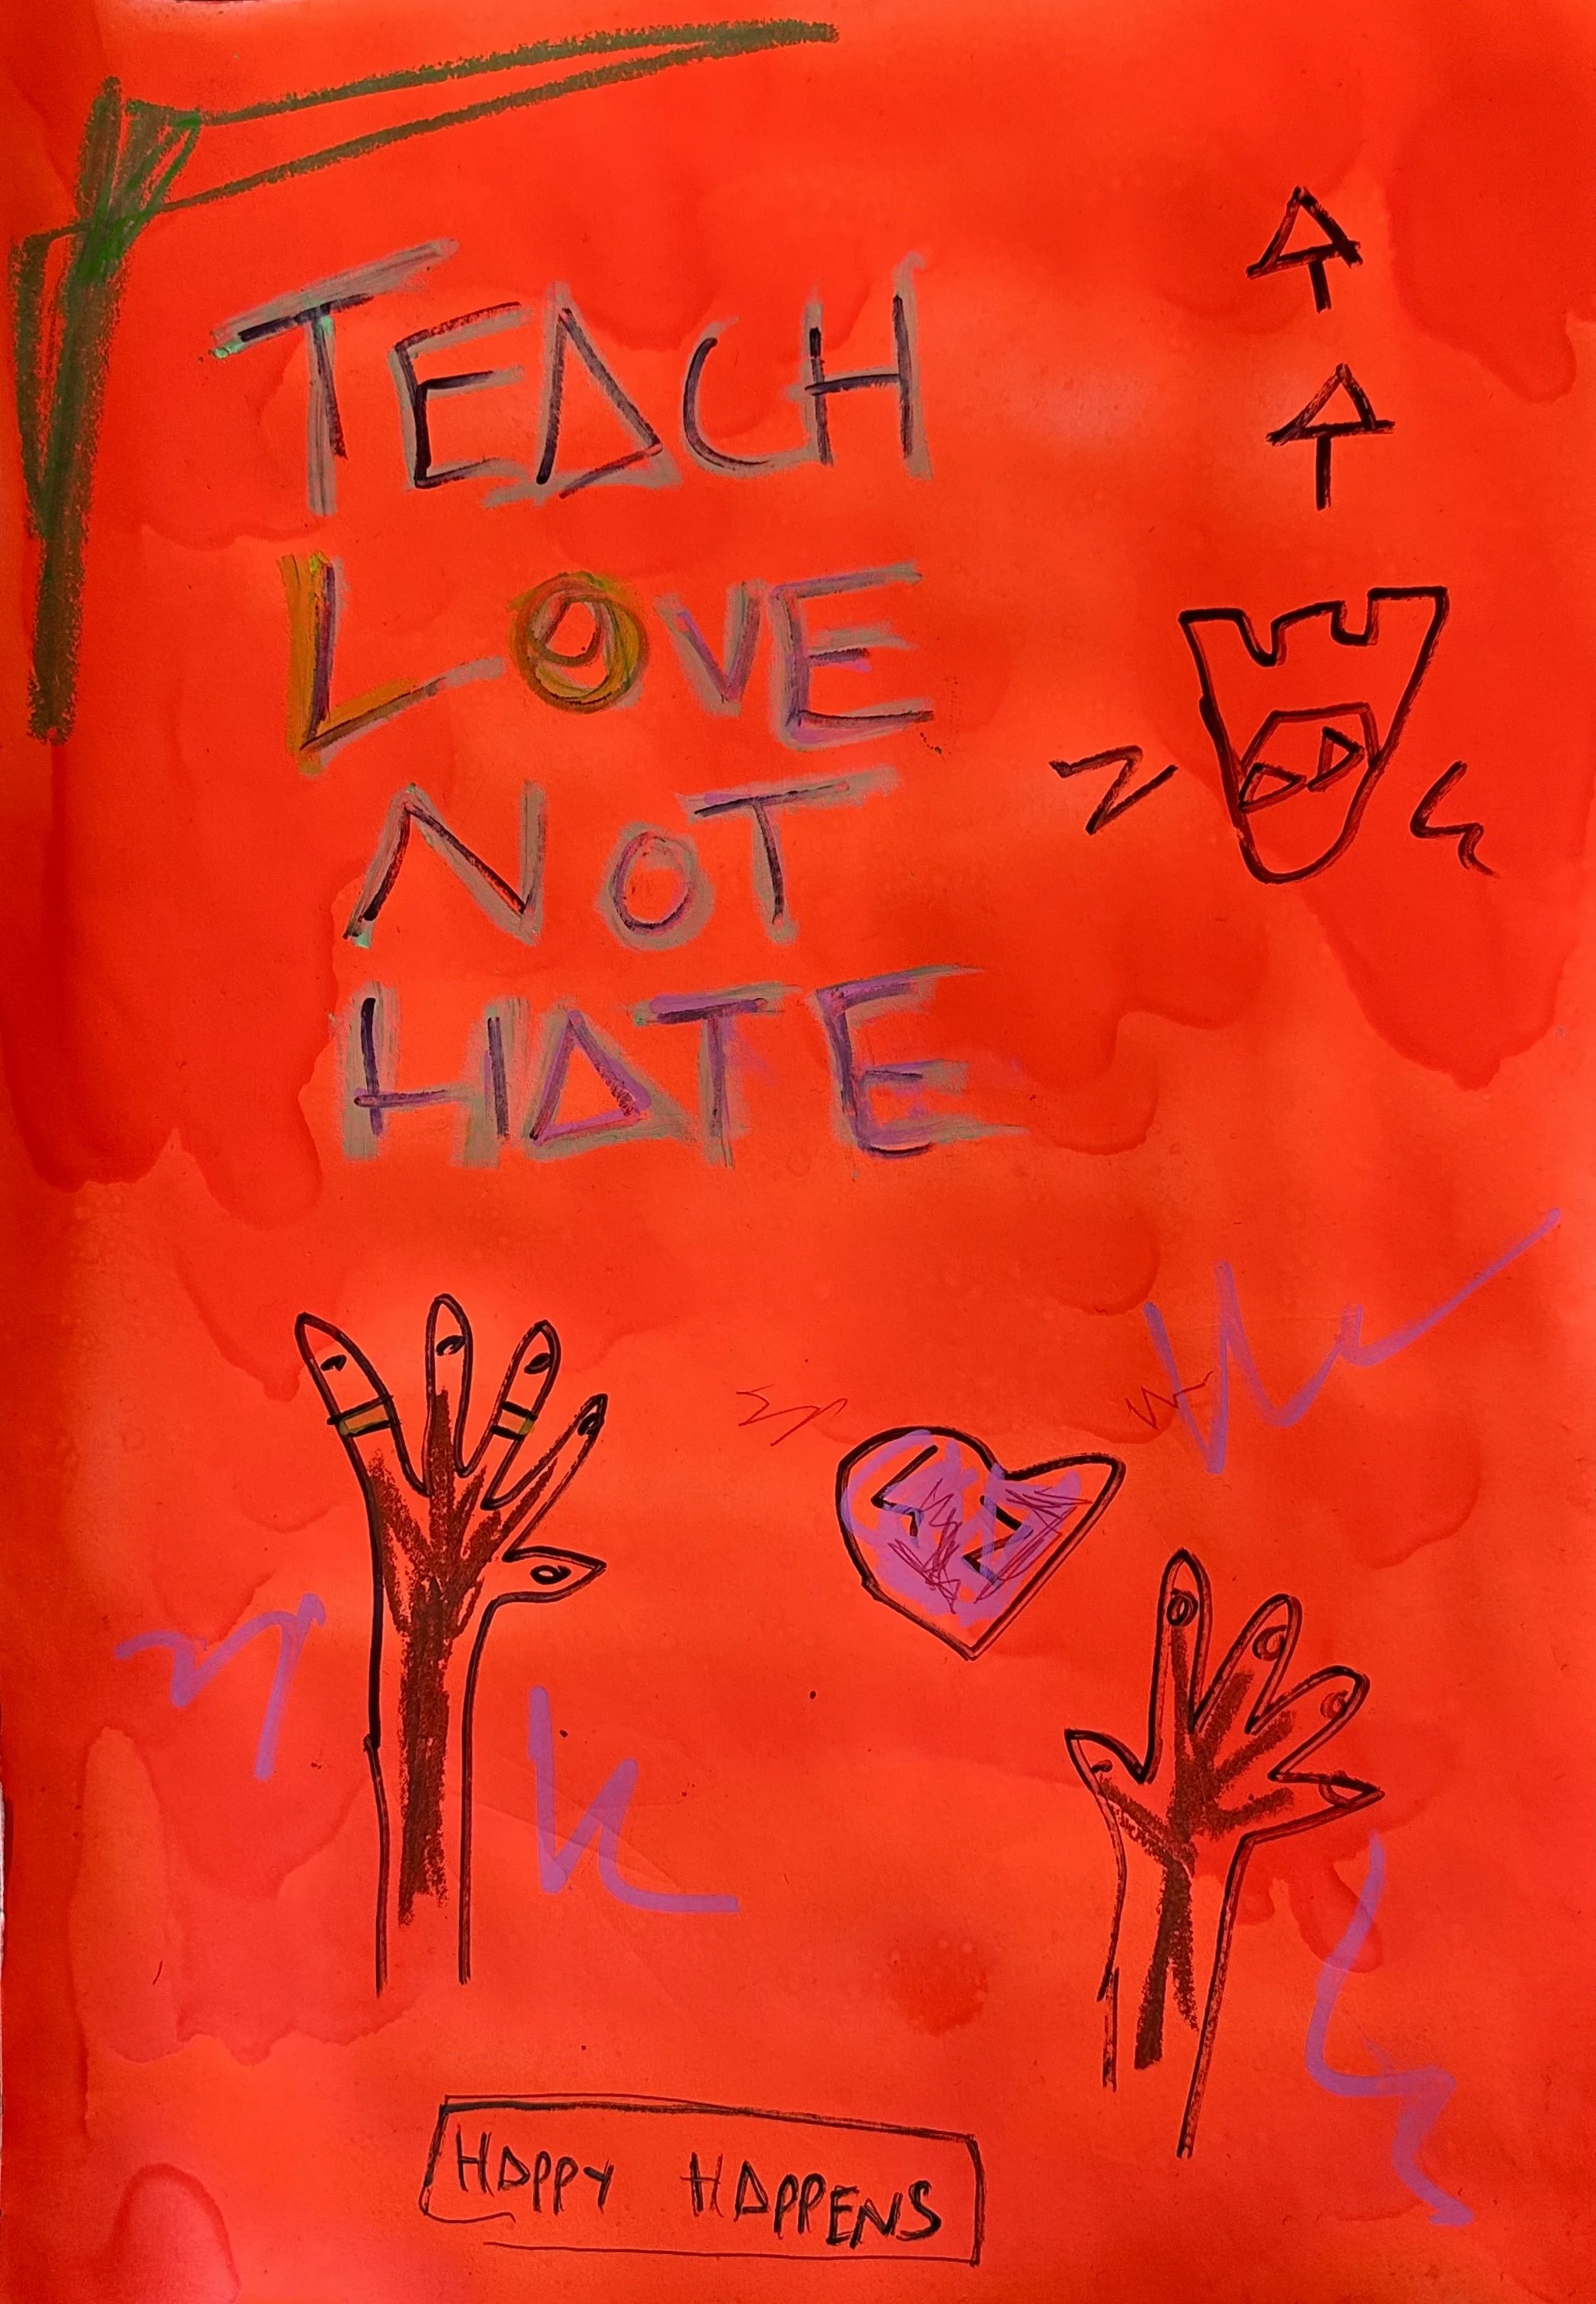 TEACH
LOVE
NOT
HATE
HAPPY HAPPENS